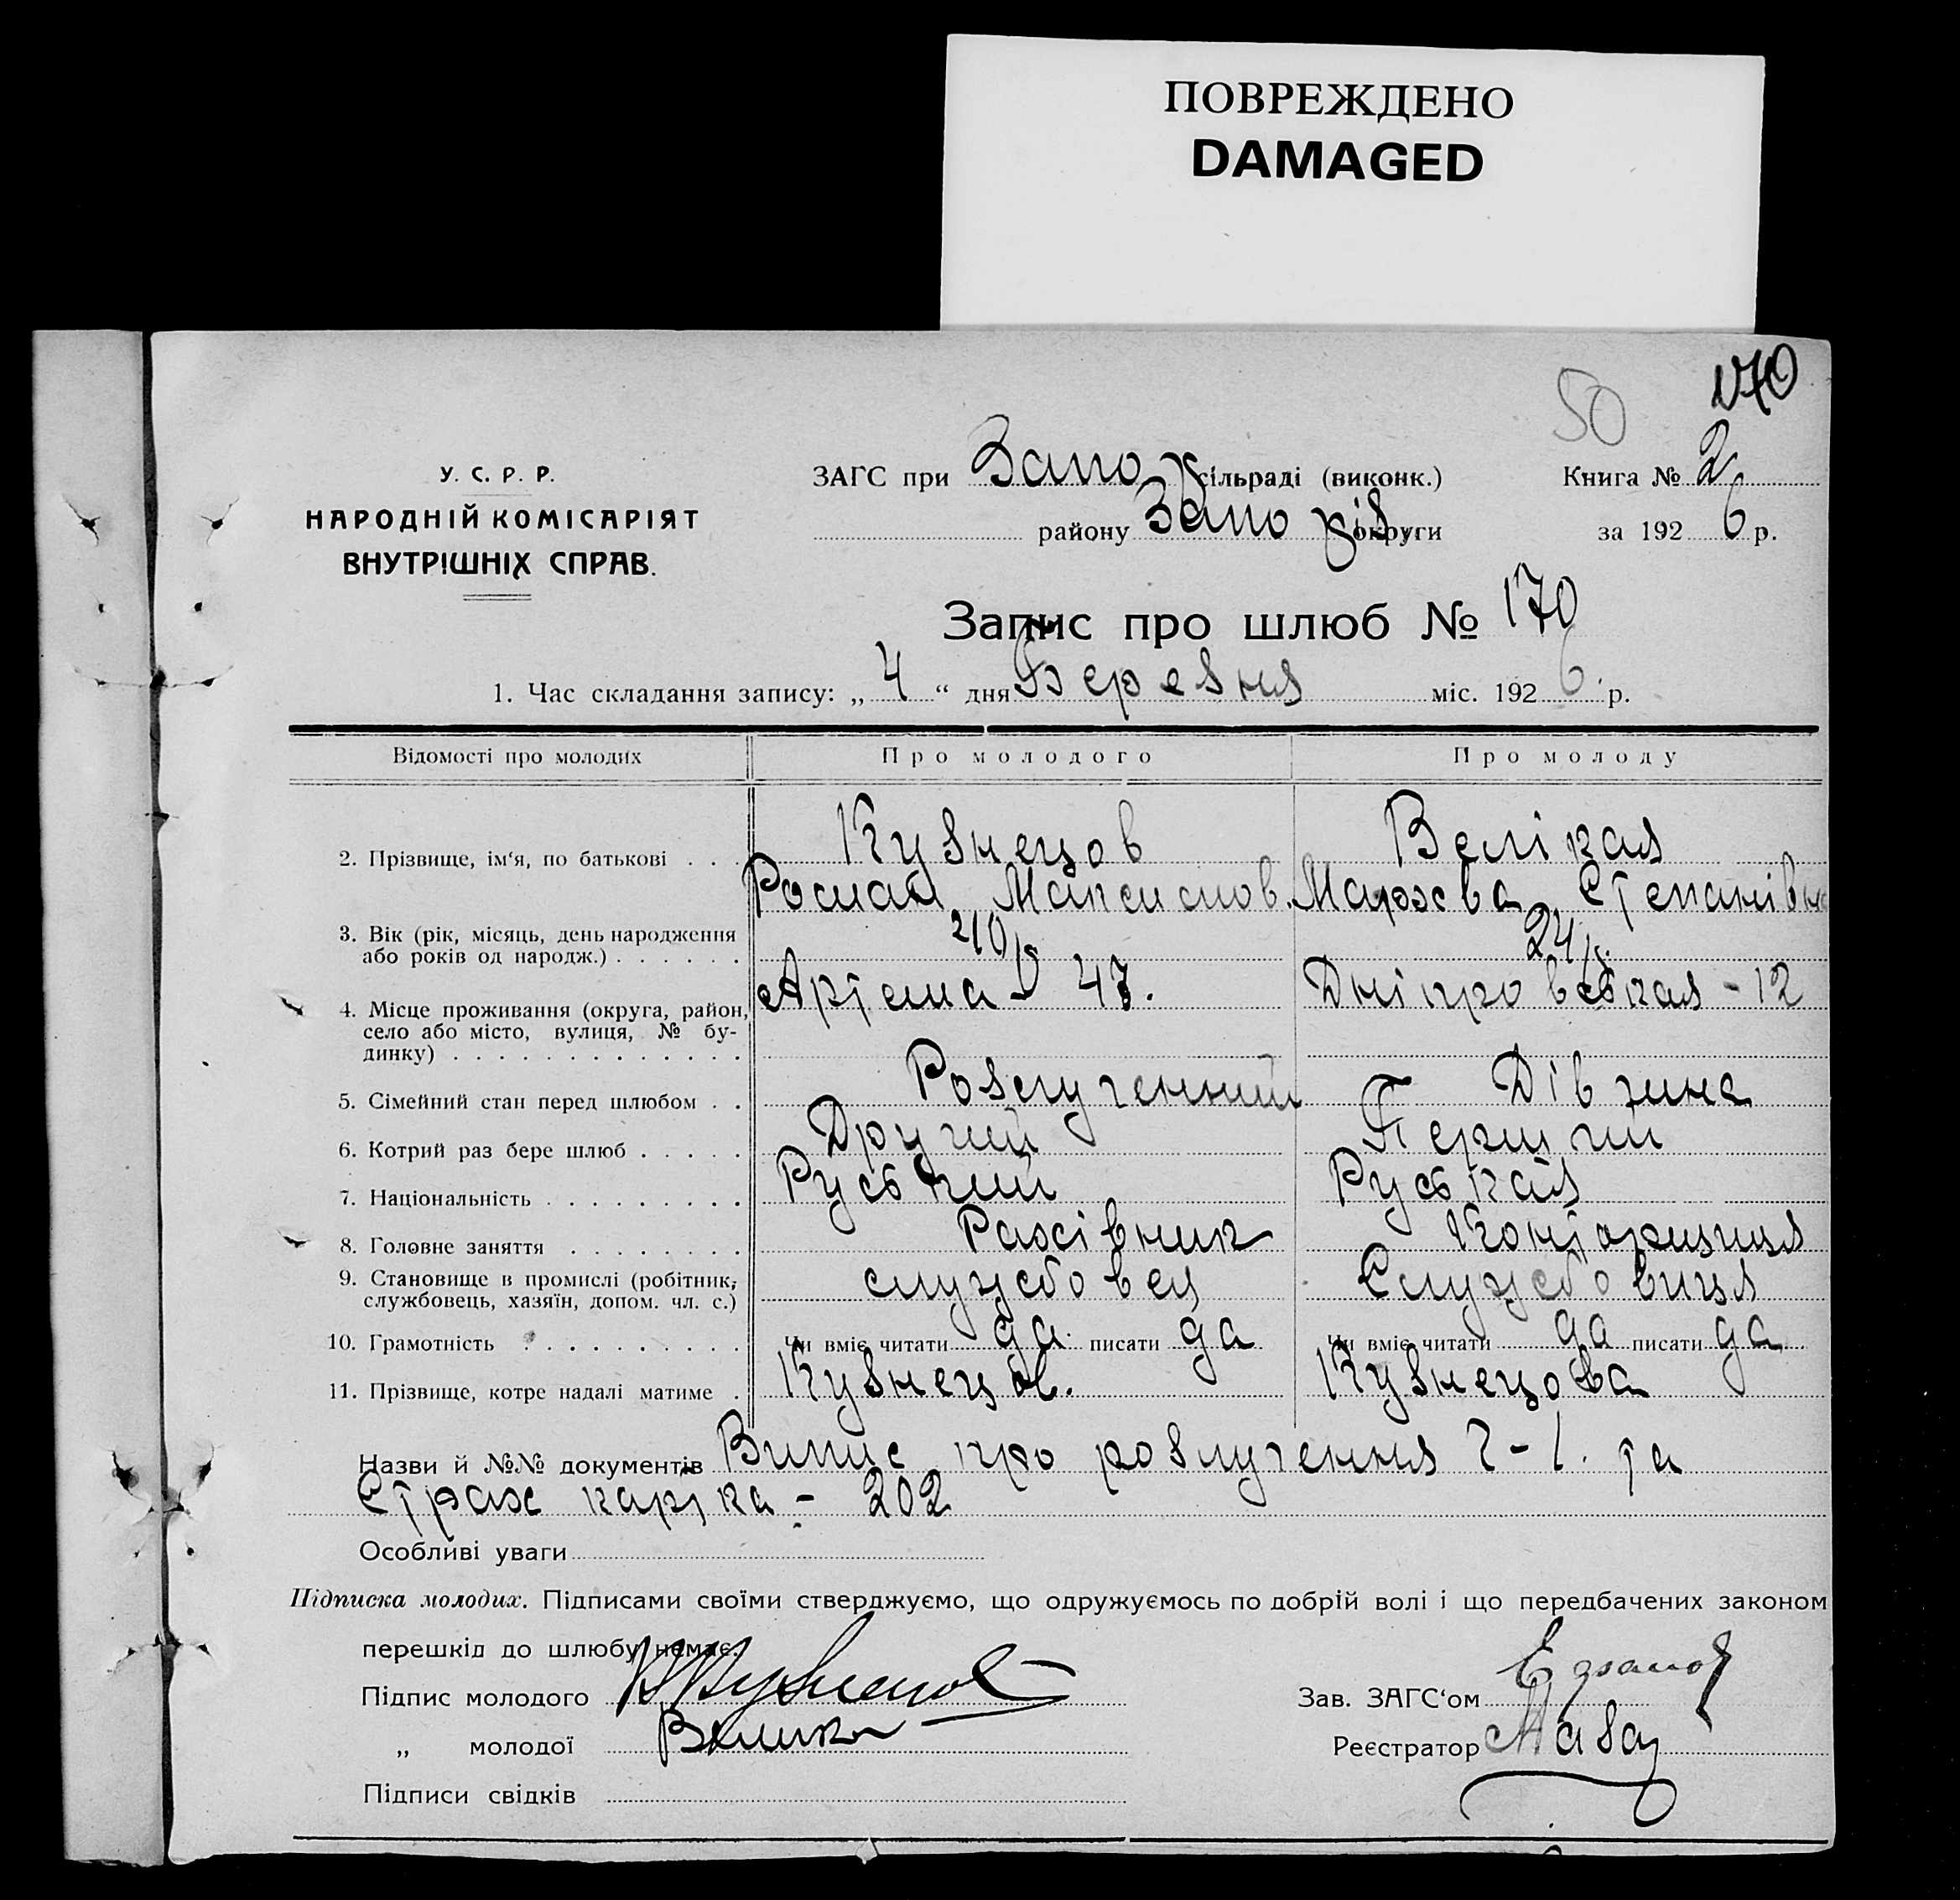 ПОВРЕЖДЕНО
DAMAGED
170
50
У. С. Р. Р.
НАРОДНІЙ КОМІСАРІЯТ
ВНУТРІШНІХ СПРАВ.
ЗАГС при Запор сільраді (виконк.) Книга № 2
району Запоріз округи за 1926 р.
Запис про шлюб № 170
1. Час складання запису: „ 4 “ дня Березня міс. 1926 р.
Відомості про молодих Про молодого Про молоду
2. Прізвище, ім‘я, по батькові . . . Кузнецов Велікая
Роман Максимов. Мархва Степанівна
3. Вік (рік, місяць, день народження
або років од народж.) . . . . . . 24 р.
4. Місце проживання (округа, район, Артема 47. Дніпровская - 12
село або місто, вулиця, № бу-
динку) . . . . . . . . . . . . .
5. Сімейний стан перед шлюбом . . Розлученний Дівчина
6. Котрий раз бере шлюб . . . . . Другий Перший
7. Національність . . . . . . . . . Руський Руская
8. Головне заняття . . . . . . . . Рахівник Конторщиця
9. Становище в промислі (робітник,
службовець, хазяїн, допом. чл. с.) службовец Службовиця
10. Грамотність . . . . . . . . . . Чи вміє читати да писати да Чи вміє читати да писати да
11. Прізвище, котре надалі матиме . Кузнецов. Кузнецова
Назви й №№ документів Випис про розлучення 2-1. та
Страх картка - 202
Особливі уваги
Підписка молодих. Підписами своїми стверджуємо, що одружуємось по добрій волі і що передбачених законом
перешкід до шлюбу немає.
Підпис молодого Кузнецов Зав. ЗАГС‘ом
„ молодої Велика Реєстратор
Підписи свідків